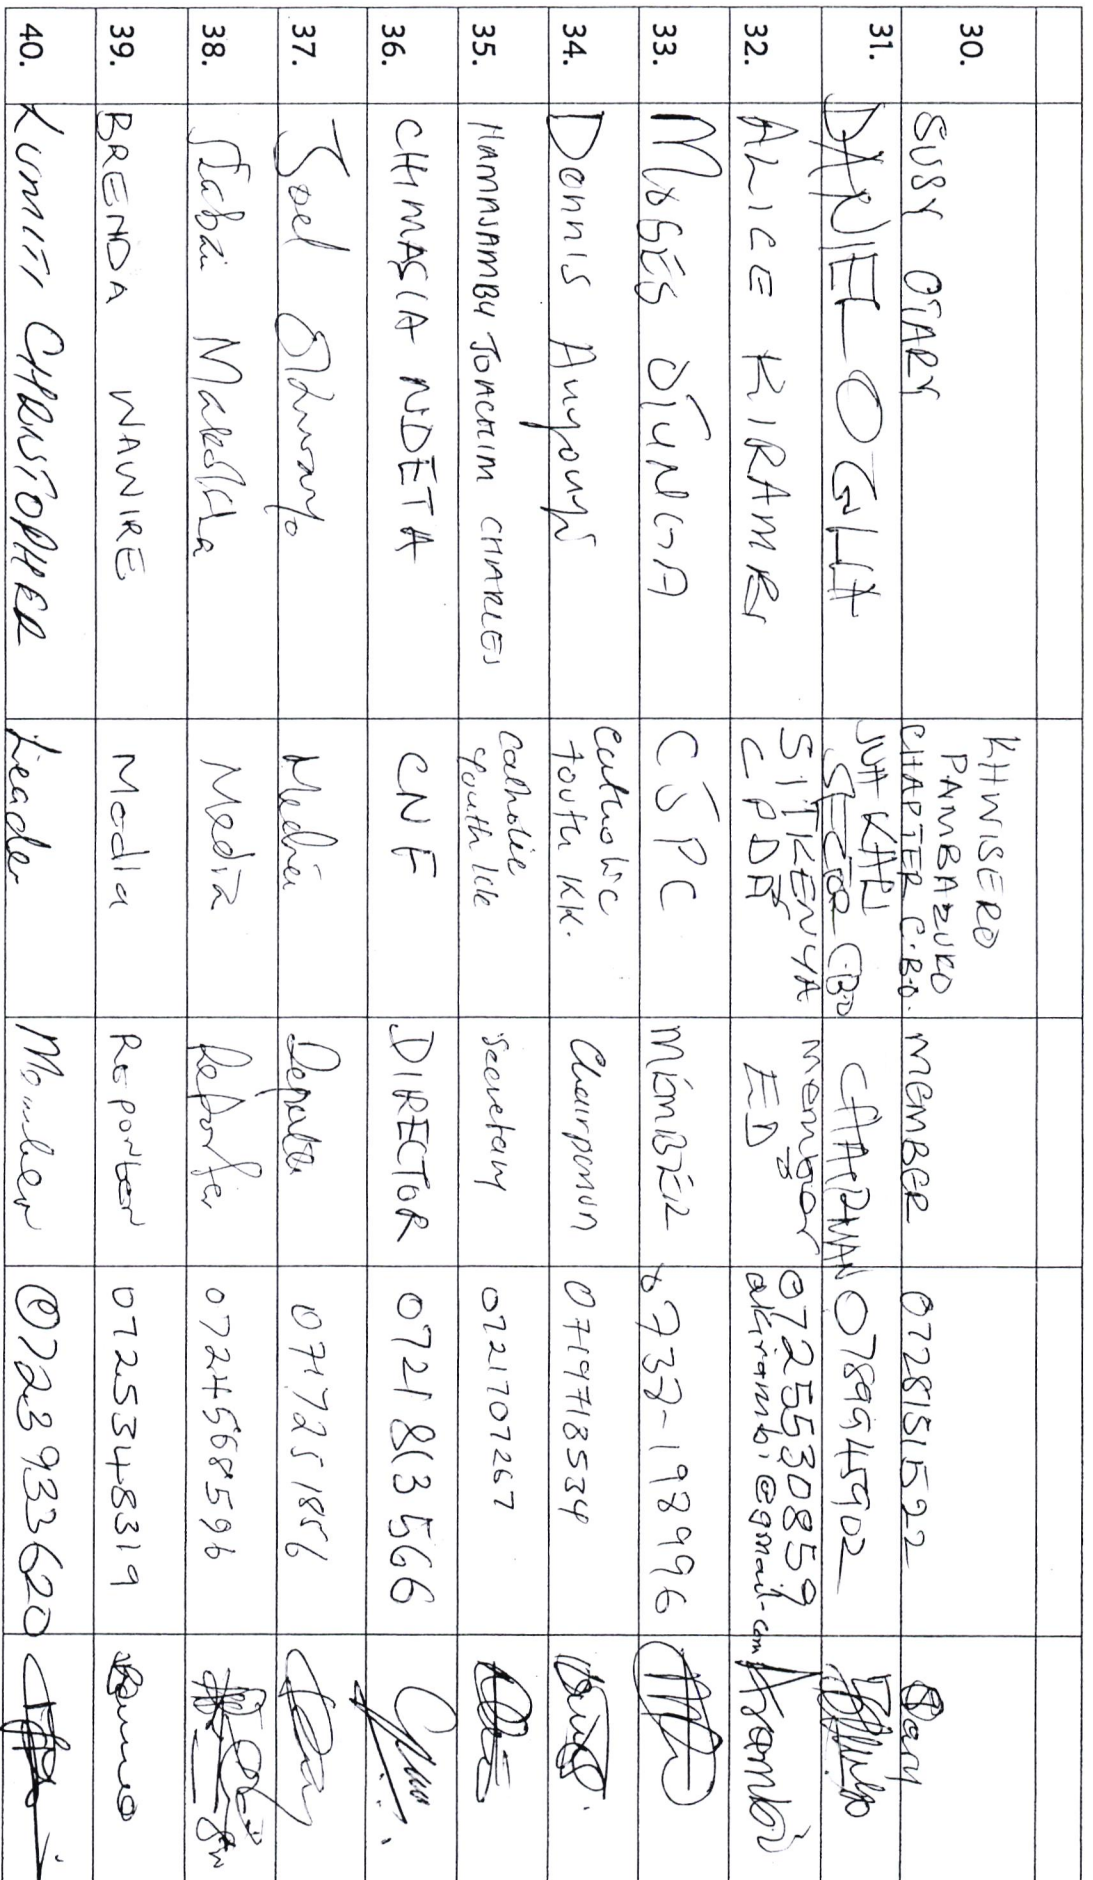 30. SUSY OTARY KHWISERO PAMBAZUKO CHAPTER C.B.O. MEMBER 0728151522
31. DANIEL OGLLA JUA KALI SECTOR CBO CHAIRMAN 0789945902
32. ALICE KIRAMBI SITKENYA CPDA member ED 0725530859 akirambi@gmail.com
33. MOSES OTUNGA CJPC MEMBER 0737-198996
34. Dennis Anyonyi Catholic Youth KK. Chairperson 0719718534
35. HAMNSAMBU JOACHIM CHARLES Catholic Youth kk Secretary 0721707267
36. CHIMASIA NDETA CNF DIRECTOR 0721813566
37. Joel Media 0717251856
38. Makokha Media Reporter 0724568596
39. BRENDA WAWIRE Media Reporter 0725348319
40. KUMITI CHRISTOPHER Leader Member 0723933620